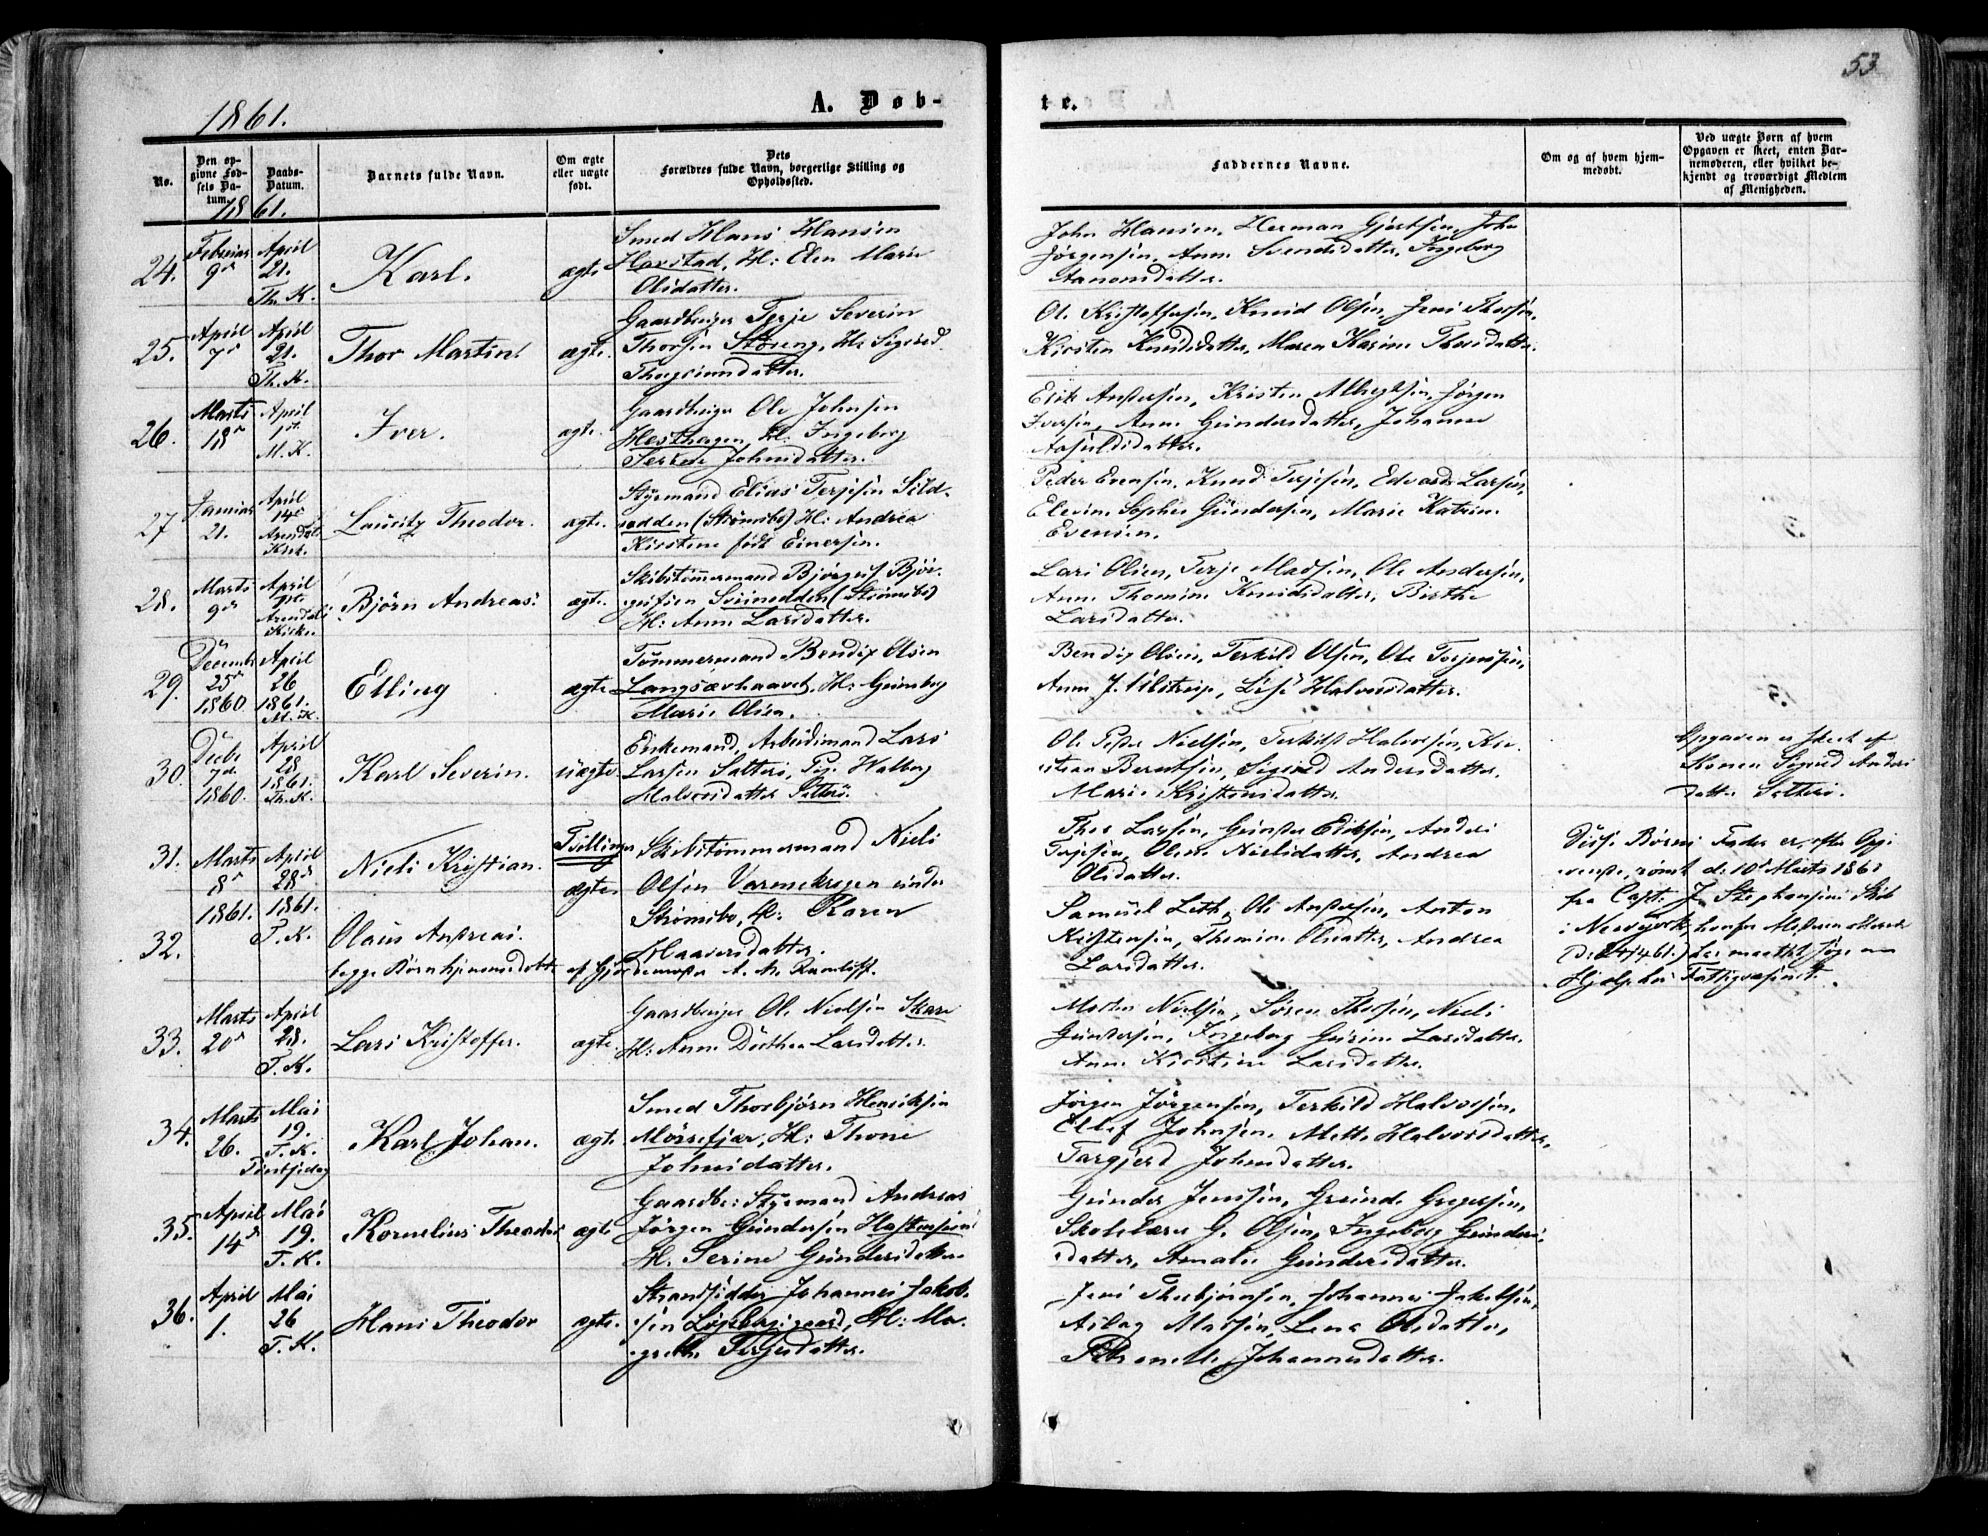 1861.
A. Døb-
No.
Den op-
givne Fød-
sels Da-
tum.
Daabs-
Datum.
Barnets fulde Navn.
Om ægte
eller uægte
født.
Dets
Forældres fulde Navn, borgerlige Stilling og
Opholdssted.
1861.
24.
Februar
9de
April
21.
Th. K.
Karl.
ægte
Smed Hans Hansen
Havstad, H: Elen Marie
Olsdatter.
25.
April
7de
April
21.
Th. K.
Thor Martin.
ægte.
Gaardbruger Terje Severin
Thorsen Støreng, H: Sigrid
26.
Marts
18de
April
1ste
M. K.
Iver.
ægte.
Gaardbruger Ole Johnsen
Hesthagen, H: Ingeborg
Serine Johnsdatter.
27
Januar
21.
April
14de
Arendals
Kirke
Lauritz Theodor.
ægte.
Styrmand Elias Terjesen Sild-
sødden (Strømsbo) H: Andrea
Kirstine født Einersen.
28.
Marts
9de
April
1ste
Arendals
Kirke
Bjørn Andreas.
ægte.
Skibstømmermand Bjørguf Bjør-
gufsen (Strømsbo)
H: Anne Larsdatter.
29.
December
25de
1860
April
26
1861.
M. K.
Elling
ægte
Tømmermand Bendix Olsen
Langsævhaavet, H: Gunborg
Marie Olsen.
30.
Decbr
7de
1860.
April
28
1861.
Th. K.
Karl Severin.
uægte
Enkemand, Arbeidsmand Lars
Larsen Salterø, Pige Walborg
Halvorsdatter Salterø.
31.
Marts
8de
1861.
April
28de
1861.
T. K.
Niels Kristian.
Tvillinger
ægte
Skibstømmermand Niels
Olsen Varmekrogen under
Strømsbo, H: Karen
Haaversdatter.
32.
Olaus Andreas.
begge Børn hjemmedøbt af Gjordemoder A. M. Ramleff.
33.
Marts
20de
April
28.
T. K.
Lars Kristoffer.
ægte.
Gaardbruger Ole Nielsen Skare
H: Anne Dorthea Larsdatter.
34.
Marts
26.
Mai
19.
T. K.
1ste Pintsedag
Karl Johan.
ægte
Smed Thorbjørn Henriksen
Mørefjær, H: Thone
Johnsdatter.
35.
April
14de
Mai
19.
T. K.
Kornelius Theodor
ægte
Gaardbr: Styrmand Andreas
Jørgen Gundersen
H. Serine Gundersdatter
36.
April
1.
Mai
26
T. K.
Hans Theodor
ægte.
Strandsidder Johannes Jakob-
sen H: Ma-
grethe Terjesdatter.
53
te.
Faddernes Navne.
Om og af hvem hjem-
medøbt.
Ved uægte Børn af hvem
Opgaven er skeet, enten Bar-
nemoderen, eller hvilket be-
kjendt og troværdigt Medlem
af Menigheden.
John Hansen, Herman Gjertsen, John
Jørgensen, Anne Svendsdatter, Ingeborg
Aanonsdatter.
Ole Kristoffersen, Knud Olsen, Jens Thorsen,
Kirsten Knudsdatter, Maren Karine Thorsdatter.
Erik Andersen, Kristen Albregtsen, Jørgen
Iversen, Anne Gundersdatter, Johanne
Peder Evensen, Knud Terjesen, Edvard Larsen,
Elevine Sophie Gundersen, Marie Katrine
Evensen.
Lars Olsen, Terje Madsen, Ole Andersen,
Anne Thomine Knudsdatter, Birthe
Larsdatter.
Bendix Olsen, Terkild Olsen, Ole Torjersen,
Anne J. Ulstrup, Lise Halvorsdatter.
Ole Peter Nielsen, Terkild Halvorsen, Kri-
stian Berntsen, Sigrid Andersdatter,
Marie Kristensdatter.
Opgaven er skeet af
Konen Sigrid Anders-
datter Salterø.
Thor Larsen, Gunder Eriksen, Anders
Terjesen, Oline Nielsdatter, Andrea
Olsdatter.
Samuel Leth, Ole Andersen, Anton
Kristensen, Thomine Olsdatter, Andrea
Larsdatter.
Disse Børns Fader er, efter Opgi-
vende, rømt d: 10de Marts 1861
fra Capt. J. Stephansens Skib
i Newyork, hvorfor Moderen
(d: 24/4 61.) har maattet søge om
Hjælp hos Fattigvæsenet.
Morten Nielsen, Søren Thorsen, Niels
Gundersen, Ingeborg Gurine Larsdatter,
Anne Kirstine Larsdatter.
Jørgen Jørgensen, Terkild Halvorsen,
Ellef Johnsen, Mette Halvorsdatter,
Targjerd Johnsdatter.
Gunder Jensen, Gunde Gregersen,
Skolelærer G. Olsen, Ingeborg Gunders-
datter, Amalie Gundersdatter.
Jens Thorbjørnsen, Johannes Jakobsen,
Aslag Madsen, Lena Olsdatter,
Petronelle Johannesdatter.